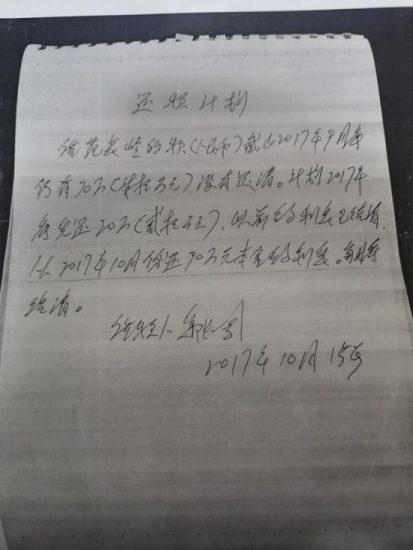 还款计划
借范 的款(人民币)截止2017年9月底
仍有70万(柒拾万元)没有还清。计划2017年
底先还20万(贰拾万元),以前的利息已结清,
从2017年10月份还70万元本金的利息。每月
结清。
借款人
2017年10月15号